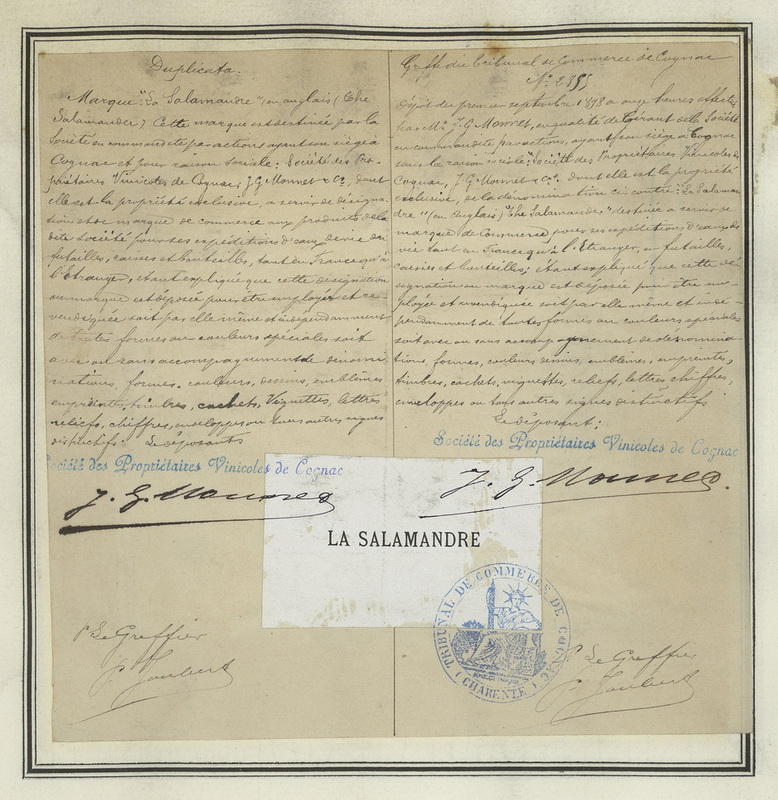 Duplicata.
Marque "La Salamandre" (en anglais (The
Salamander) Cette marque est destinée par la
Société en commandite par actions ayant son siège à
Cognac et pour raison sociale: Société des Pro-
priétaires Vinicoles de Cognac, J. G. Monnet & Cie, dont
elle est la propriété exclusive, à servir de désigna-
tion et de marque de commerce aux produits de la
dite société pour ses expéditions d'eau de vie en
futailles, caisses et bouteilles, tant en France qu'à
l'Etranger, étant expliqué que cette désignation
ou marque est déposée pour être employée et re-
vendiquée soit par elle même et indépendamment
de toutes formes ou couleurs spéciales soit
avec ou sans accompagnement de dénomi-
nations, formes, couleurs, dessins, emblèmes
empreintes, timbres, cachets, Vignettes, lettres
reliefs, chiffres, enveloppes ou tous autres signes
distinctifs. Le déposants
Société des Propriétaires Vinicoles de Cognac
J. G. Monnet
P Le Greffier
P. Joubert
Greffe du Tribunal de Commerce de Cognac
N° 2855
Dépôt du premier septembre 1898 à onze heures effectué
par Mr J. G. Monnet, en qualité de Gérant de la Société
en commandite par actions, ayant son siège à Cognac
sous la raison sociale: Société des Propriétaires Vinicoles de
Cognac, J. G. Monnet & Cie. dont elle est la propriété
exclusive, de la dénomination ci contre: "La Salaman
dre" (en Anglais) "The Salamander" destinée à servir de
marque de Commerce pour ses expéditions d'eaux de
vie tant en France qu'à l'Etranger, en futailles,
caisses et bouteilles; étant expliqué que cette dé-
signation ou marque est déposée pour être em-
ployée et revendiquée soit par elle même et indé-
pendamment de toutes formes ou couleurs spéciales
soit avec ou sans accompagnement de dénomina-
tions, formes, couleurs, dessins, emblèmes, empreintes,
timbres, cachets, vignettes, reliefs, lettres chiffres,
enveloppes ou tous autres signes distinctifs
Le déposant;
Société des Propriétaires Vinicoles de Cognac
J. G. Monnet.
LA SALAMANDRE
TRIBUNAL DE COMMERCE DE COGNAC
(CHARENTE)
P Le Greffier
P. Joubert